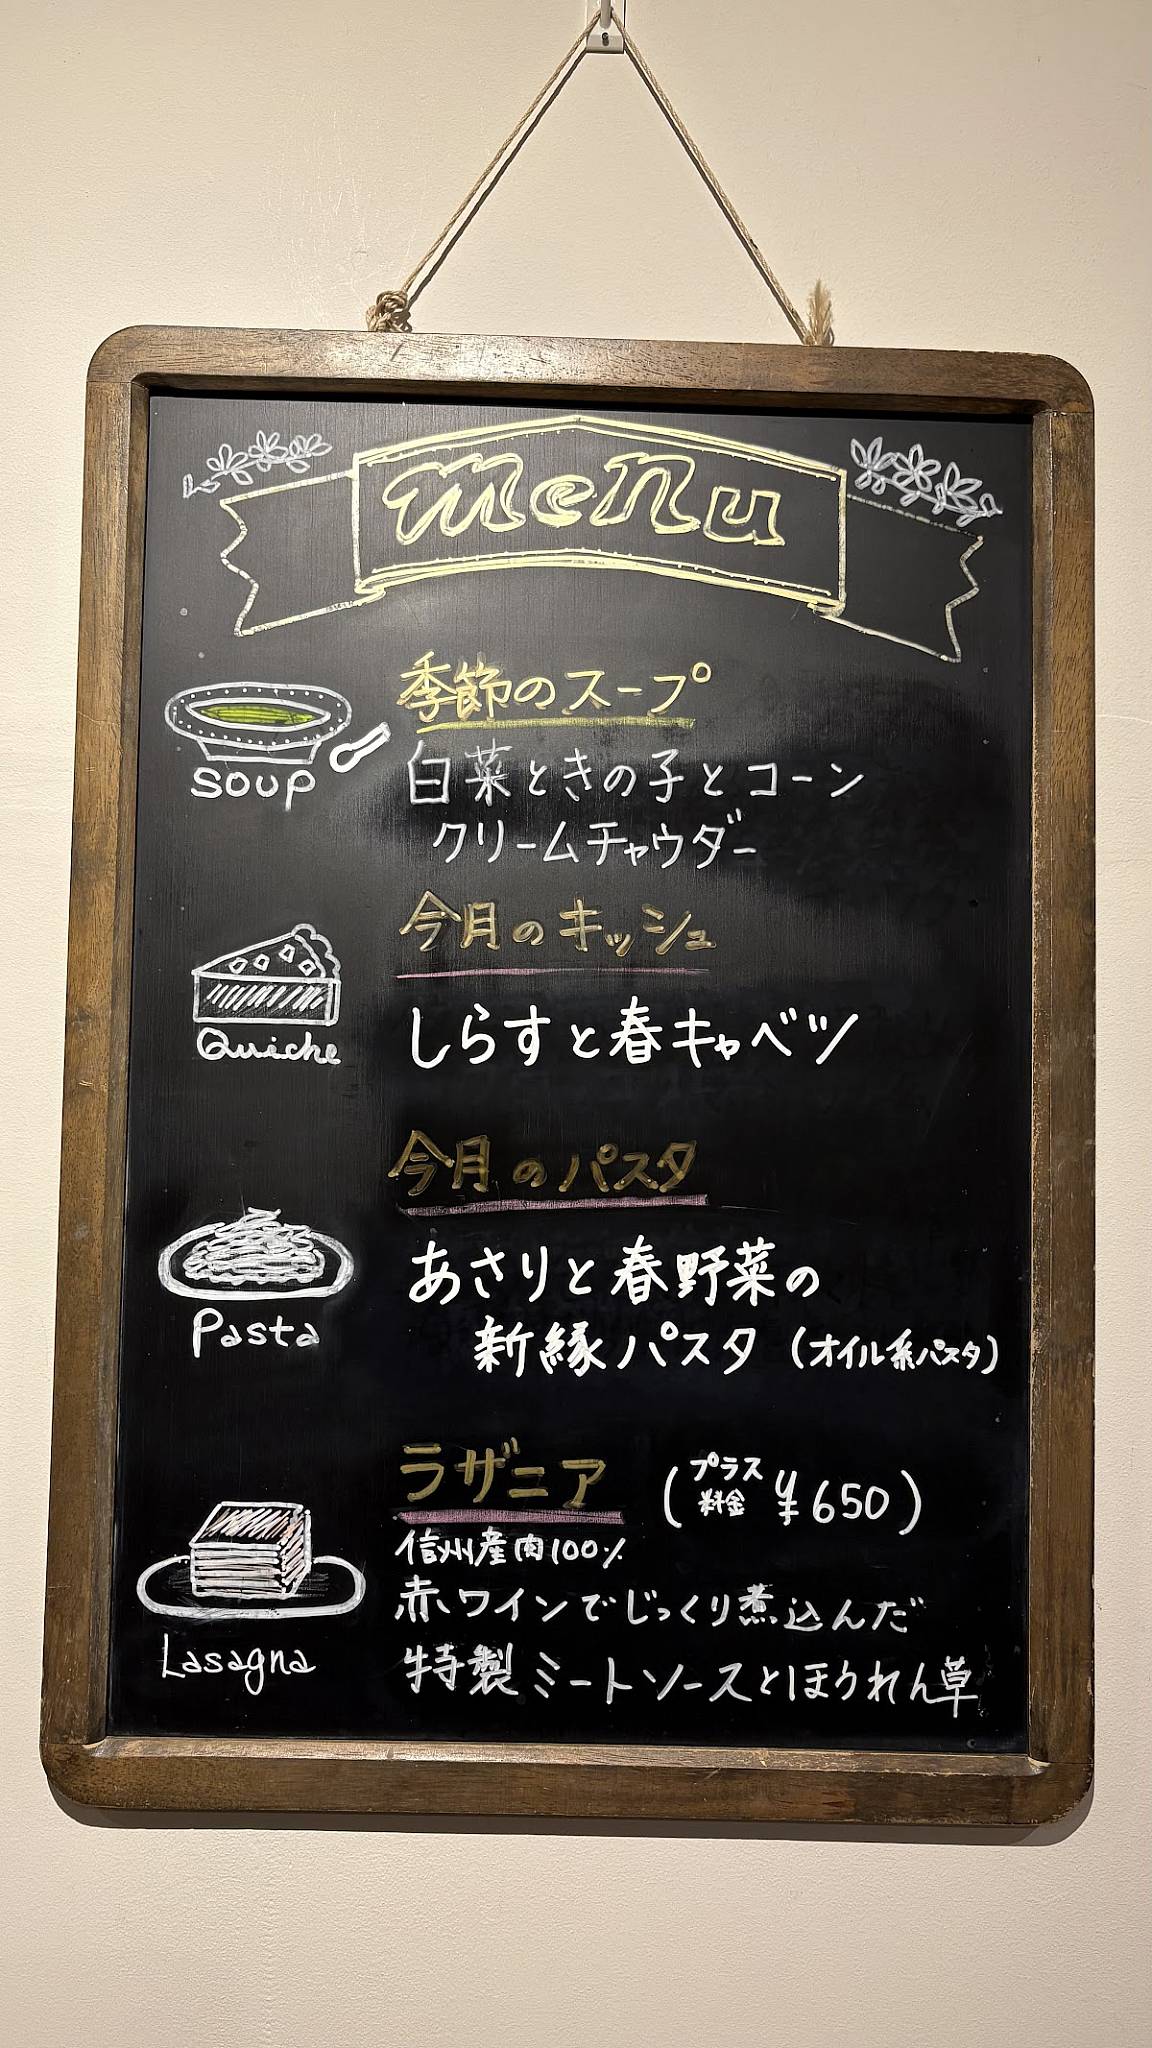 menu
季節のスープ
soup
白菜ときの子とコーン
クリームチャウダー
今月のキッシュ
Quiche
しらすと春キャベツ
今月のパスタ
Pasta
あさりと春野菜の
新縁パスタ (オイル系パスタ)
ラザニア (プラス料金 ¥650)
信州産肉100%
Lasagna
赤ワインでじっくり煮込んだ
特製ミートソースとほうれん草